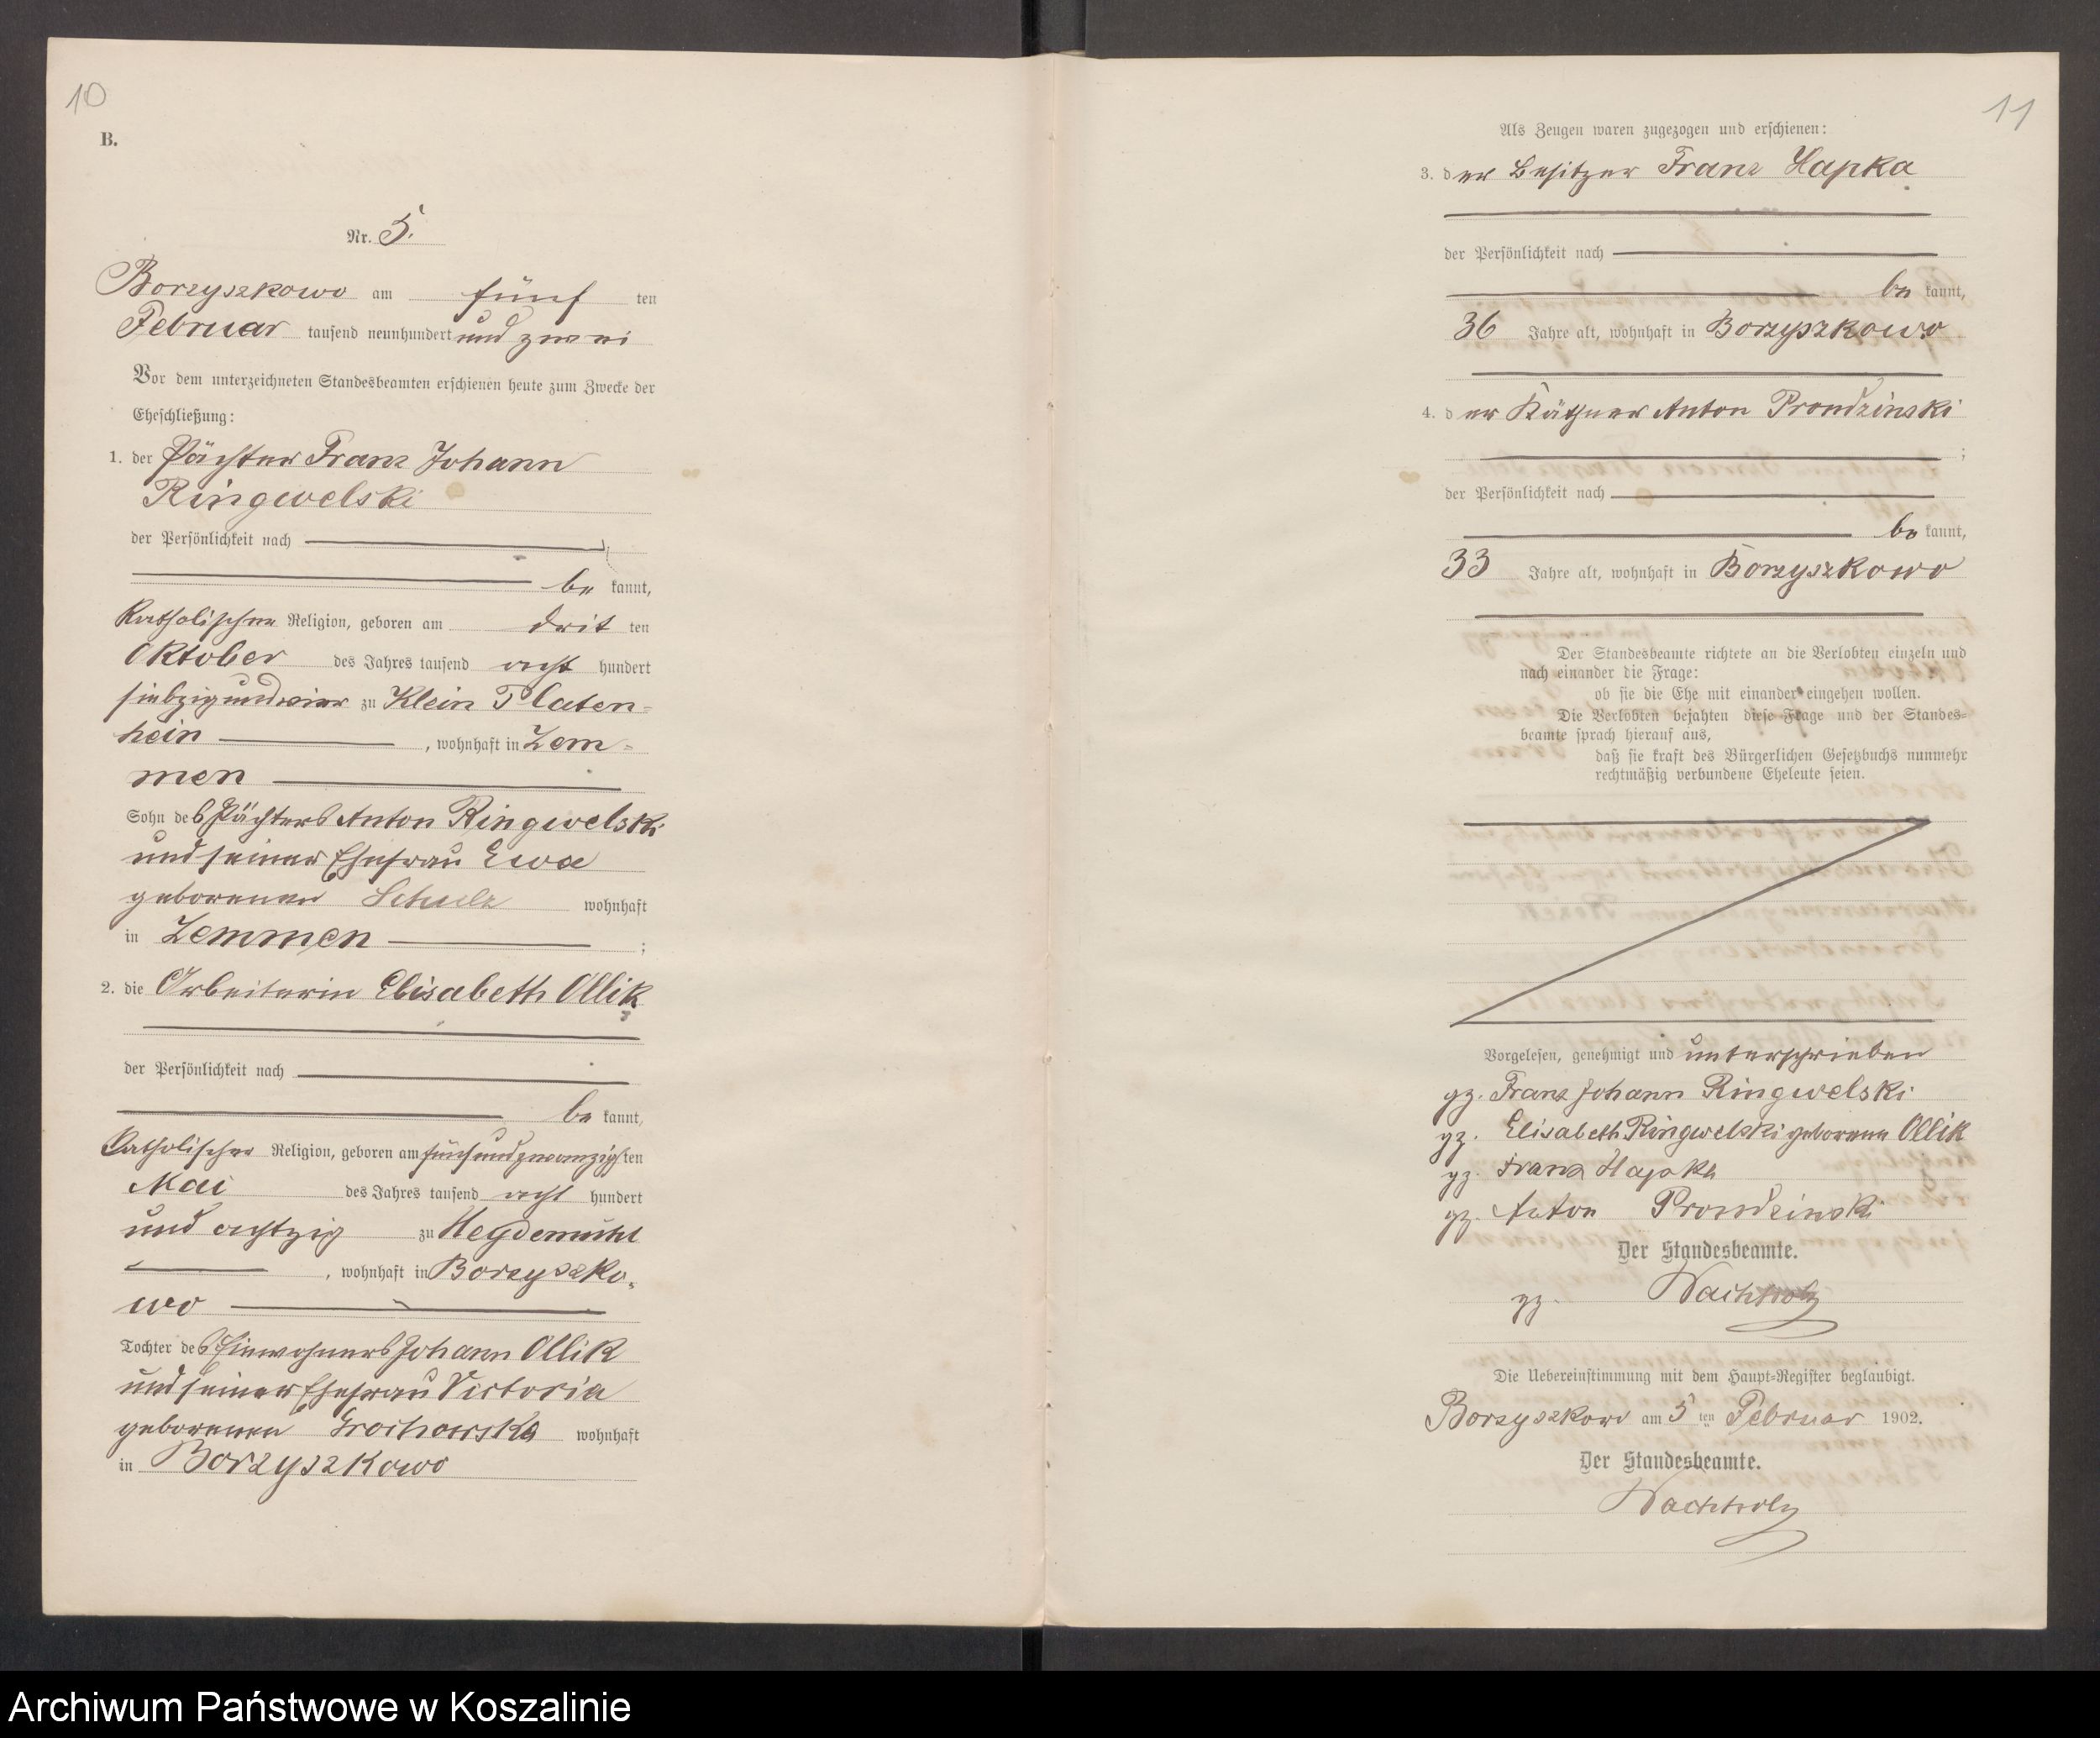 10
B.
Nr. 5.
Borzyszkowo am fünf ten
Februar tausend neunhundert und zwei
Vor dem unterzeichneten Standesbeamten erschienen heute zum Zwecke der
Eheschließung:
1. der Pächter Franz Johann
Ringwelski
der Persönlichkeit nach
be kannt,
katholischer Religion, geboren am drit ten
Oktober des Jahres tausend acht hundert
siebzig und vier zu Klein Platen=
hein , wohnhaft in Zem=
men
Sohn des Pächters Anton Ringwelski
und seiner Ehefrau Ewa
geborenen Schulz wohnhaft
in Zemmen ;
2. die Arbeiterin Elisabeth Ollik
der Persönlichkeit nach
be kannt,
katholischer Religion, geboren am fünfundzwanzigsten
Mai des Jahres tausend acht hundert
und achtzig zu Heydemühl
, wohnhaft in Borzyszko=
wo
Tochter des Einwohners Johann Ollik
und seiner Ehefrau Victoria
geborenen Grochowska wohnhaft
in Borzyszkowo
11
Als Zeugen waren zugezogen und erschienen:
3. der Besitzer Franz Hapka
der Persönlichkeit nach
be kannt,
36 Jahre alt, wohnhaft in Borzyszkowo
4. der Käthner Anton Prondzinski
;
der Persönlichkeit nach
be kannt,
33 Jahre alt, wohnhaft in Borzyszkowo
Der Standesbeamte richtete an die Verlobten einzeln und
nach einander die Frage:
ob sie die Ehe mit einander eingehen wollen.
Die Verlobten bejahten diese Frage und der Standes=
beamte sprach hierauf aus,
daß sie kraft des Bürgerlichen Gesetzbuchs nunmehr
rechtmäßig verbundene Eheleute seien.
Vorgelesen, genehmigt und unterschrieben
gz. Franz Johann Ringwelski
gz. Elisabeth Ringwelski geborene Ollik
gz. Franz Hapka
gz. Anton Prondzinski
Der Standesbeamte.
gz. Wachholz
Die Uebereinstimmung mit dem Haupt=Register beglaubigt.
Borzyszkowo am 5 ten Februar 1902.
Der Standesbeamte.
Wachholz
Archiwum Państwowe w Koszalinie